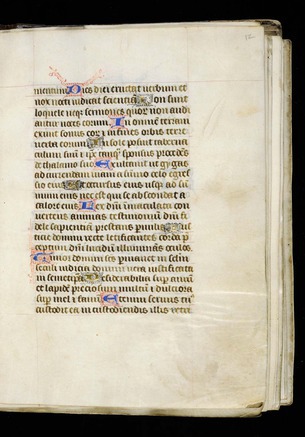 mentum Dies diei eructat uerbum et
nox nocti indicat scientia Non sunt
loquele neqz sermones quor non audi
antur uoces eorum In omnē terram
exiuit sonus eor in fines orbis terre
uerba eorum In sole posuit tabernā
culum suū ipse tanqz sponsus procedēs
de thalamo suo Exultauit ut gygas
ad currendam uiam a sūmo celo egres
sio eius Et occursus eius usqz ad sū
mum eius nec est qui se abscondat a
calore eius Lex dni immaculata con
uertens animas testimoniū dni fi
dele sapientiam prestans paruulis Ius
ticie domini recte letificantes corda p
ceptum dni lucidū illuminans oculos
Timor domini scs pmanet in sclm
seculi iudicia domini uera iustificata
in semetipsa Desiderabilia sup aurū
et lapidē preciosum multū et dulciora
sup mel et fauū Etenim seruus tuus
custodit ea in custodiendis illis retri